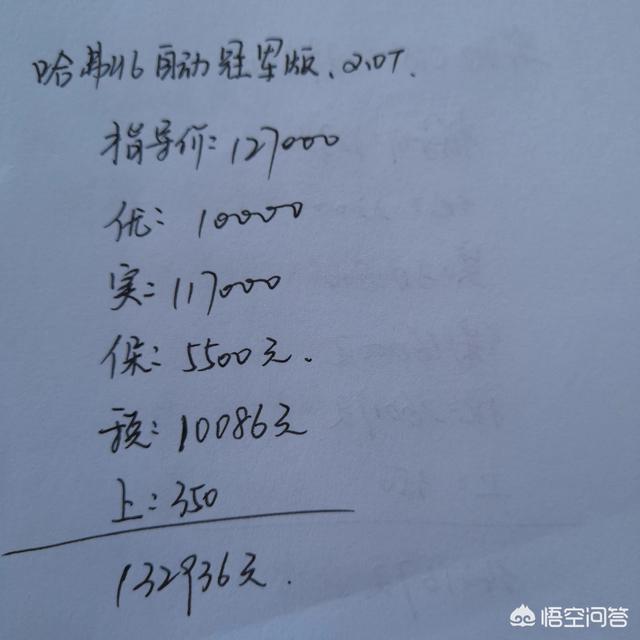 哈弗H6自动冠军版、2.0T.
指导价:127000
优:10000
实:117000
保:5500元.
预:10086元
上:350
132936元.
悟空问答